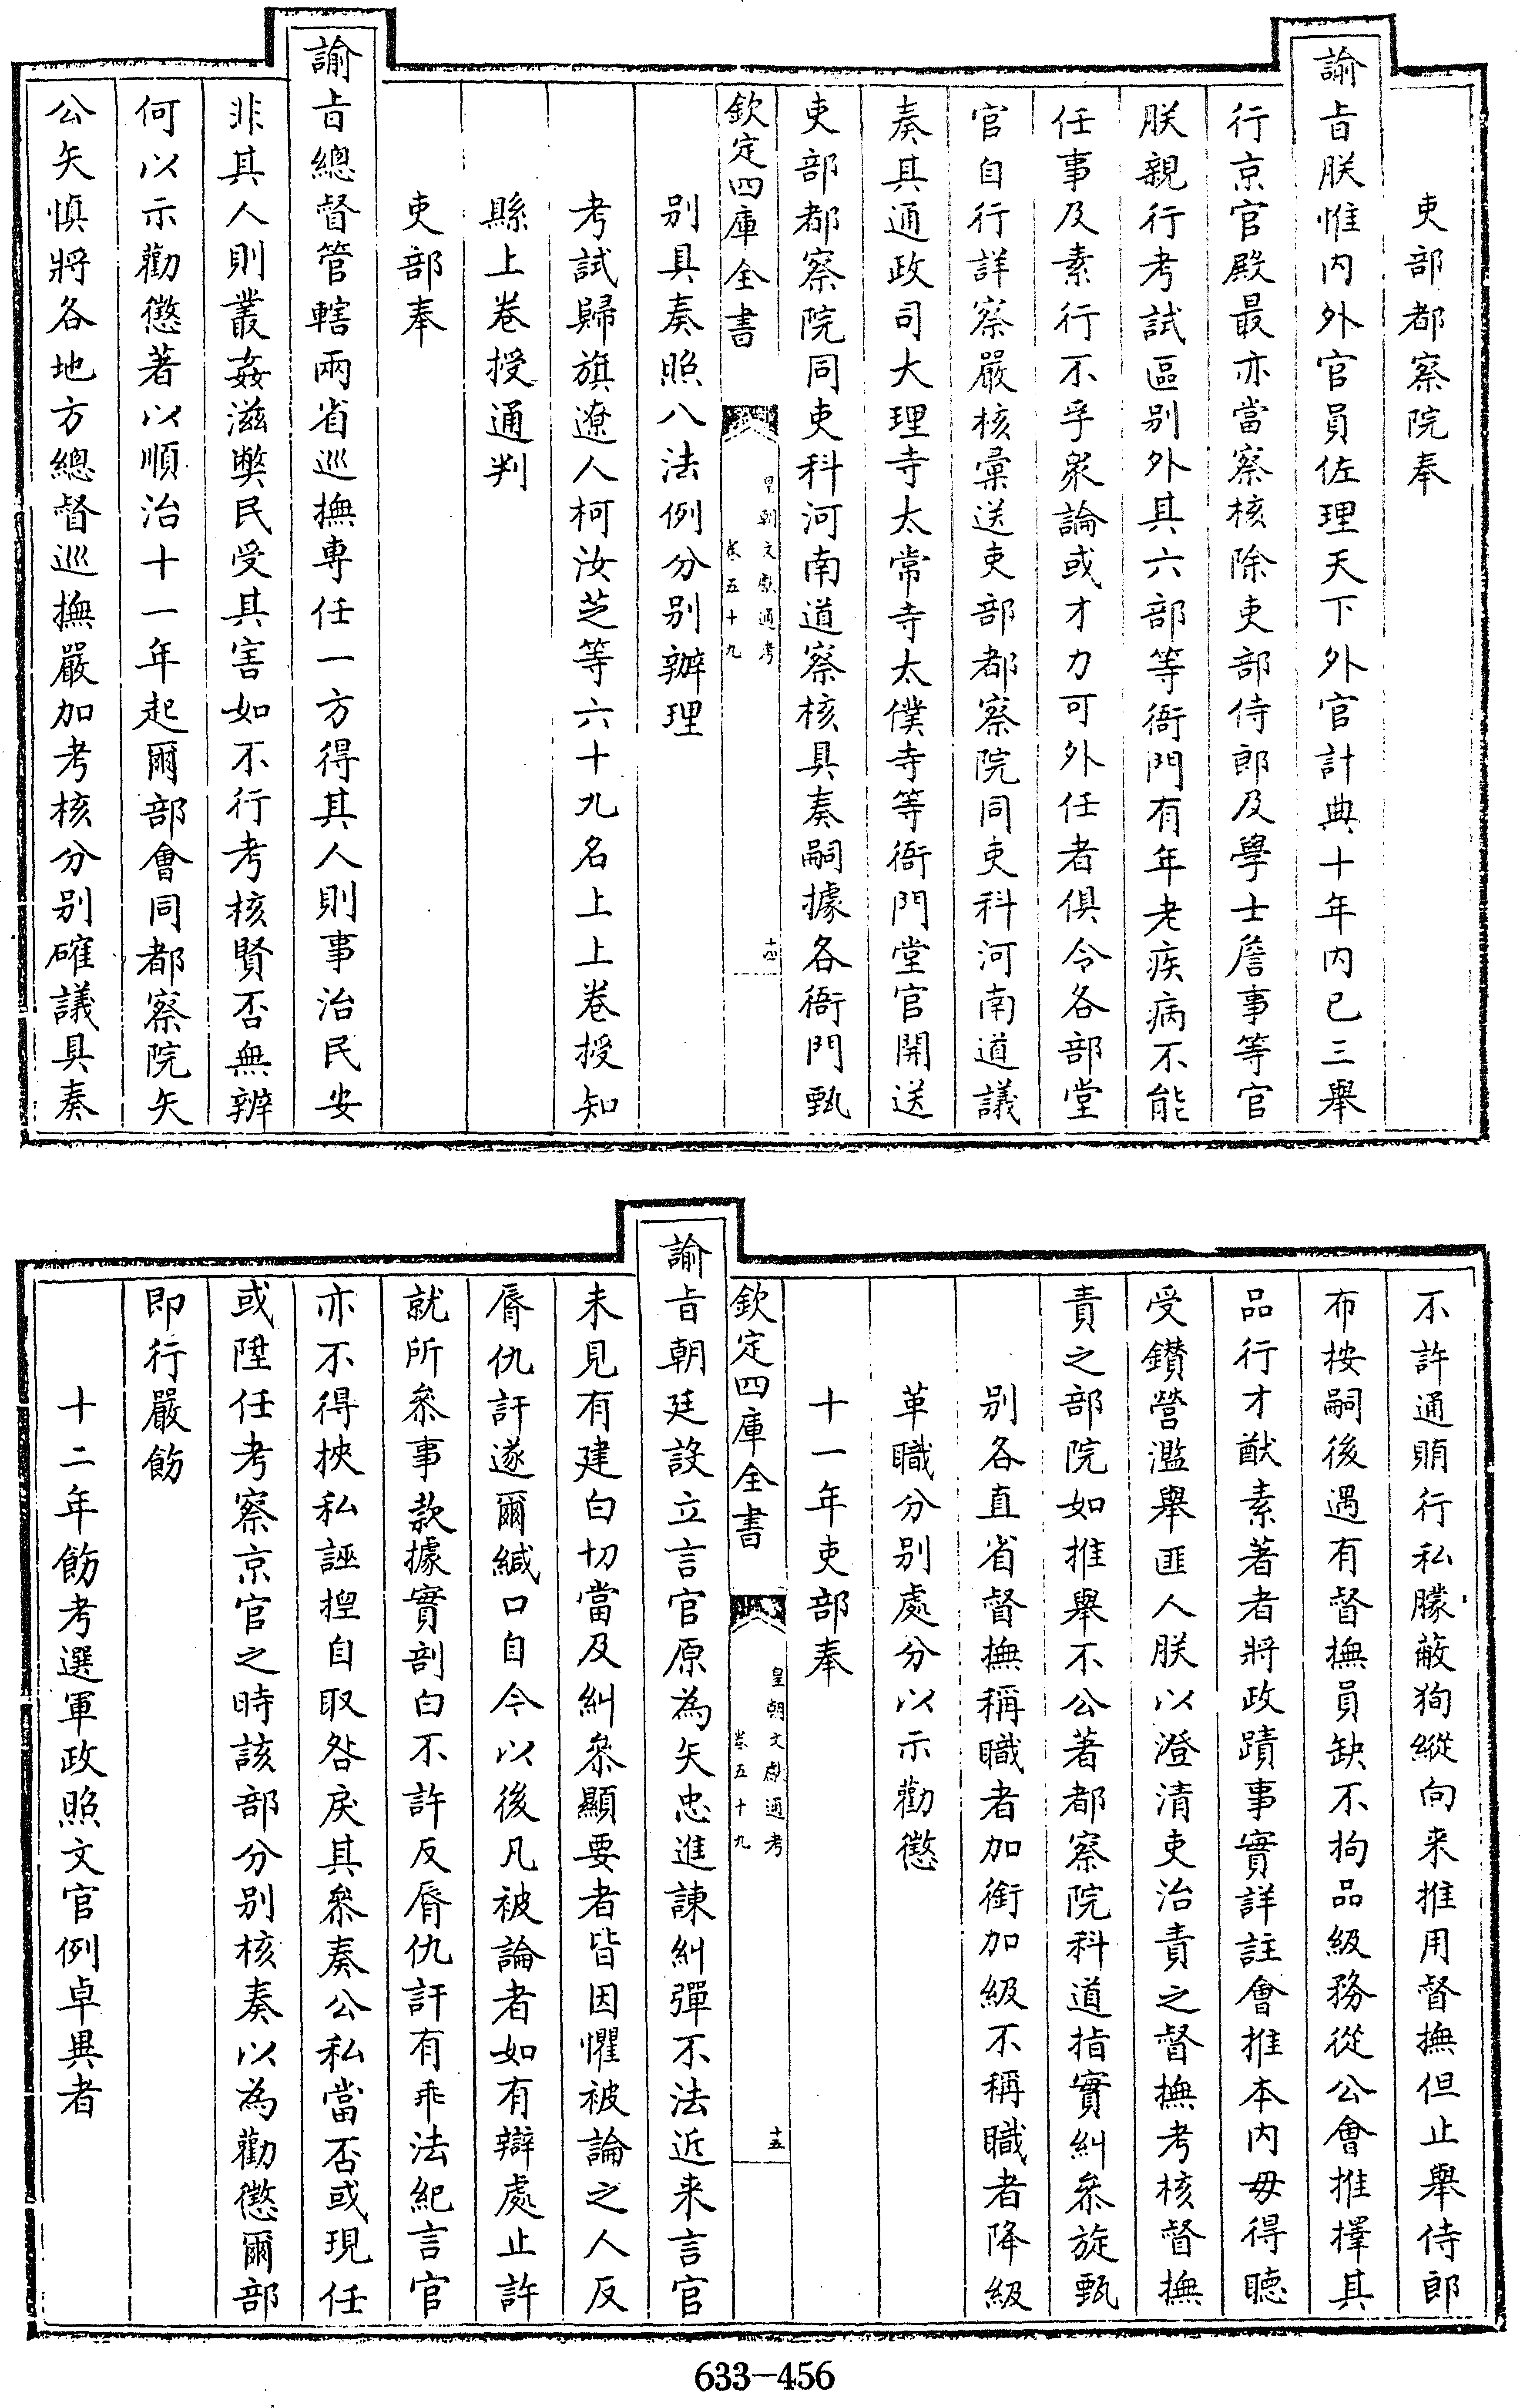 吏部都察院奉
諭旨朕惟内外官員佐理天下外官計典十年内已三舉
行京官殿最亦當察核除吏部侍郎及學士詹事等官
朕親行考試區别外其六部等衙門有年老疾病不能
任事及素行不孚衆論或才力可外任者俱令各部堂
官自行詳察嚴核彙送吏部都察院同吏科河南道議
奏其通政司大理寺太常寺太僕寺等衙門堂官開送
吏部都察院同吏科河南道察核具奏嗣據各衙門甄
欽定四庫全書
皇朝文獻通考
卷五十九
十四
别具奏照八法例分别辦理
考試歸旗遼人柯汝芝等六十九名上上卷授知
縣上卷授通判
吏部奉
諭旨總督管轄兩省巡撫專任一方得其人則事治民安
非其人則叢姦滋弊民受其害如不行考核賢否無辨
何以示勸懲著以順治十一年起爾部會同都察院矢
公矢慎將各地方總督巡撫嚴加考核分别確議具奏
不許通賄行私朦蔽狥縱向来推用督撫但止舉侍郎
布按嗣後遇有督撫員缺不拘品級務從公會推擇其
品行才猷素著者將政蹟事實詳註會推本内毋得聽
受鑽營濫舉匪人朕以澄清吏治責之督撫考核督撫
責之部院如推舉不公著都察院科道指實糾叅旋甄
别各直省督撫稱職者加銜加級不稱職者降級
革職分别處分以示勸懲
十一年吏部奉
欽定四庫全書
皇朝文獻通考
卷五十九
十五
諭旨朝廷設立言官原為矢忠進諫糾彈不法近来言官
未見有建白切當及糾叅顯要者皆因懼被論之人反
脣仇訐遂爾緘口自今以後凡被論者如有辯處止許
就所叅事款據實剖白不許反脣仇訐有乖法紀言官
亦不得挾私誣揑自取咎戾其叅奏公私當否或現任
或陞任考察京官之時該部分别核奏以為勸懲爾部
即行嚴飭
十二年飭考選軍政照文官例卓異者
633-456